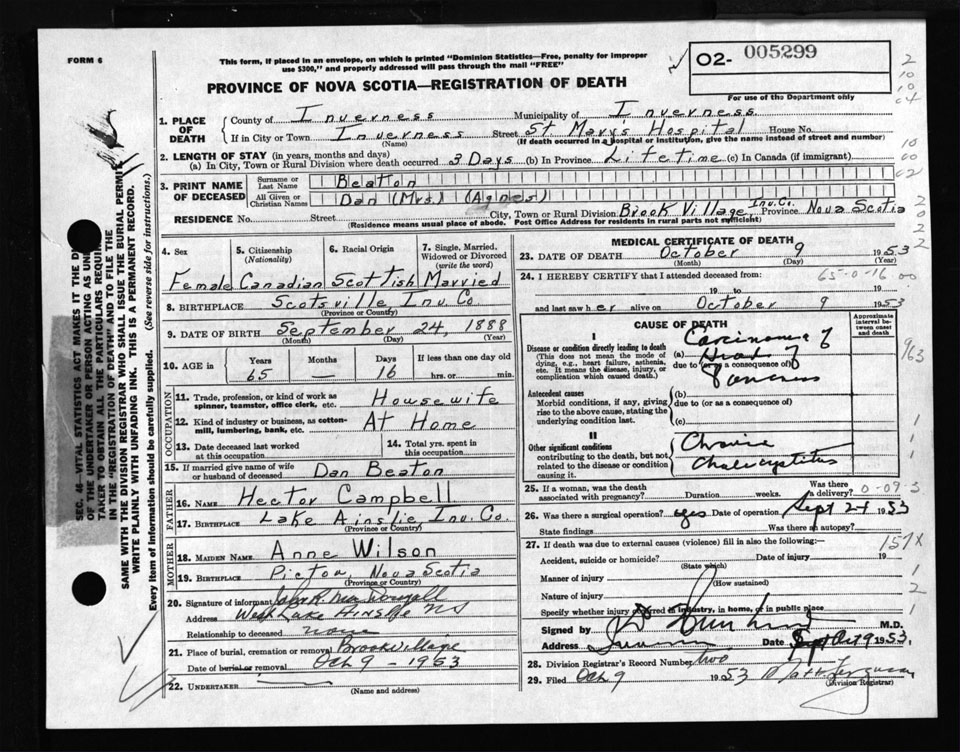 FORM 6
This form, if placed in an envelope, on which is printed "Dominion Statistics—Free, penalty for improper
use $300," and properly addressed will pass through the mail "FREE"
O2- 005299
For use of the Department only
PROVINCE OF NOVA SCOTIA—REGISTRATION OF DEATH
1. PLACE OF DEATH
County of Inverness Municipality of Inverness
If in City or Town Inverness Street St. Marys Hospital House No.
(Name) (If death occurred in a hospital or institution, give the name instead of street and number)
2. LENGTH OF STAY (in years, months and days)
(a) In City, Town or Rural Division where death occurred 3 Days (b) In Province Lifetime (c) In Canada (if immigrant)
3. PRINT NAME OF DECEASED
Surname or Last Name Beaton
All Given or Christian Names Dan (Mrs) (Agnes)
RESIDENCE No. Street City, Town or Rural Division Brook Village Inv. Co. Province Nova Scotia
(Residence means usual place of abode. Post Office Address for residents in rural parts not sufficient)
4. Sex 5. Citizenship (Nationality) 6. Racial Origin 7. Single, Married, Widowed or Divorced (write the word)
Female Canadian Scottish Married
8. BIRTHPLACE Scotsville Inv. Co.
(Province or Country)
9. DATE OF BIRTH September 24 1888
(Month) (Day) (Year)
10. AGE in Years Months Days If less than one day old
65 — 16 hrs. or min.
OCCUPATION
11. Trade, profession, or kind of work as spinner, teamster, office clerk, etc. Housewife
12. Kind of industry or business, as cotton-mill, lumbering, bank, etc. At Home
13. Date deceased last worked at this occupation 14. Total yrs. spent in this occupation
15. If married give name of wife or husband of deceased Dan Beaton
FATHER
16. NAME Hector Campbell
17. BIRTHPLACE Lake Ainslie Inv. Co.
(Province or Country)
MOTHER
18. MAIDEN NAME Anne Wilson
19. BIRTHPLACE Pictou Nova Scotia
(Province or Country)
20. Signature of informant
Address West Lake Ainslie NS
Relationship to deceased none
21. Place of burial, cremation or removal Brook Village
Date of burial or removal Oct 9 - 1953
22. UNDERTAKER
(Name and address)
MEDICAL CERTIFICATE OF DEATH
23. DATE OF DEATH October 9 1953
(Month) (Day) (Year)
24. I HEREBY CERTIFY that I attended deceased from: 65-0-16 00
19 to 19
and last saw her alive on October 9 1953
CAUSE OF DEATH Approximate interval between onset and death
I
Disease or condition directly leading to death
(This does not mean the mode of dying, e.g., heart failure, asthenia, etc. It means the disease, injury, or complication which caused death.)
(a) Carcinoma of
due to (or as a consequence of) Head of
Pancreas
Antecedent causes
Morbid conditions, if any, giving rise to the above cause, stating the underlying condition last.
(b)
due to (or as a consequence of)
(c)
II
Other significant conditions
contributing to the death, but not related to the disease or condition causing it.
Chronic
Cholecystitis
25. If a woman, was the death associated with pregnancy? Duration weeks. Was there a delivery? 0-09-3
26. Was there a surgical operation? yes Date of operation Sept 24 1953
State findings Was there an autopsy?
27. If death was due to external causes (violence) fill in also the following:— 157X
Accident, suicide or homicide? Date of injury 19
(State which)
Manner of injury
(How sustained)
Nature of injury
Specify whether injury occurred in industry, in home, or in public place
Signed by M.D.
Address Date Oct 9 1953
28. Division Registrar's Record Number two
29. Filed Oct 9 1953
(Division Registrar)
SEC. 46—VITAL STATISTICS ACT MAKES IT THE
OF THE UNDERTAKER OR PERSON ACTING AS
TAKER TO OBTAIN ALL THE PARTICULARS
IN THE "REGISTRATION OF DEATH" AND TO FILE THE
SAME WITH THE DIVISION REGISTRAR WHO SHALL ISSUE THE BURIAL PERMIT
WRITE PLAINLY WITH UNFADING INK. THIS IS A PERMANENT RECORD.
Every item of information should be carefully supplied. (See reverse side for instructions.)